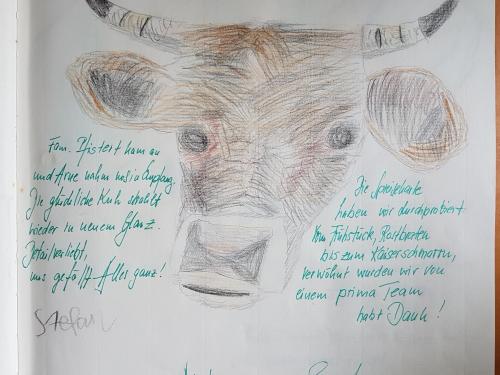 Fam. Pfistert kam an
und Arne nahm uns in Empfang.
Die glückliche Kuh strahlt
wieder in neuem Glanz.
Detailverliebt,
uns gefällt Alles ganz!
Stefan
Die Speisekarte
haben wir durchprobiert.
Vom Frühstück, Rostbraten
bis zum Kaiserschmarrn,
verwöhnt wurden wir von
einem prima Team
habt Dank!